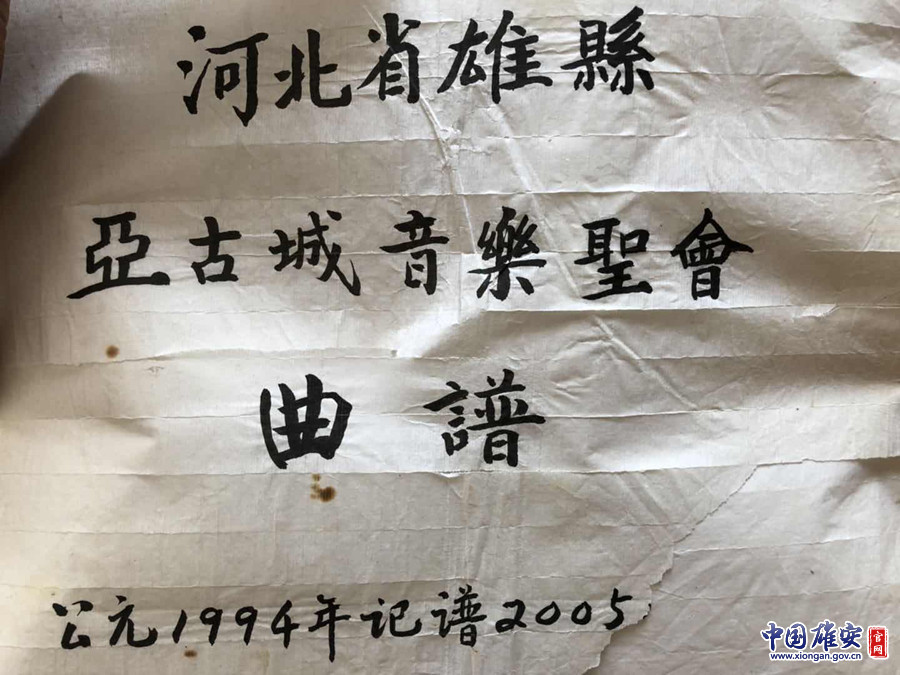 河北省雄縣
亞古城音樂聖會
曲譜
公元1994年记谱2005
中国雄安 官网
www.xiongan.gov.cn